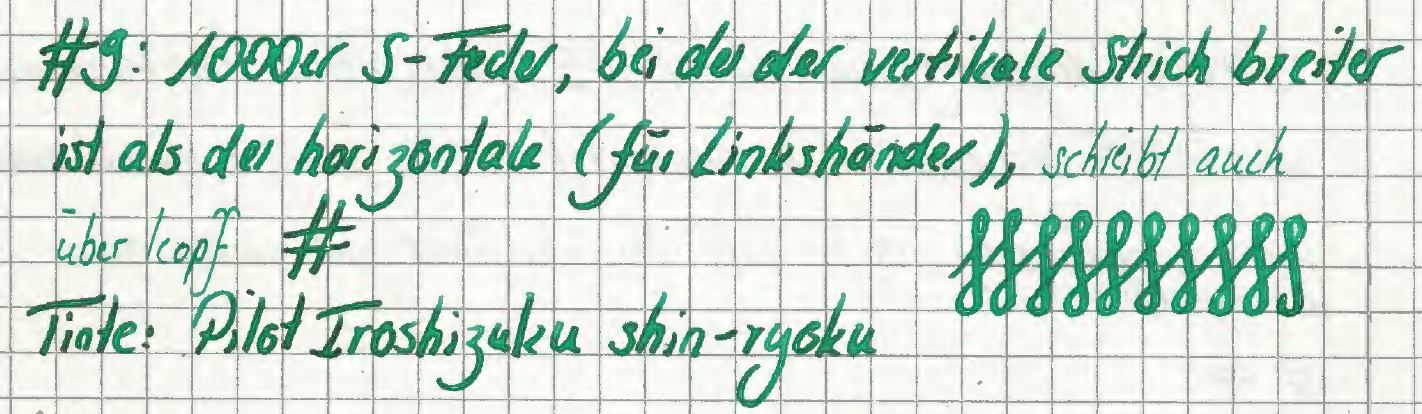 #9: 1000er S-Feder, bei der der vertikale Strich breiter
ist als der horizontale (für Linkshänder), schreibt auch
über kopf #
Tinte: Pilot Iroshizuku shin-ryoku